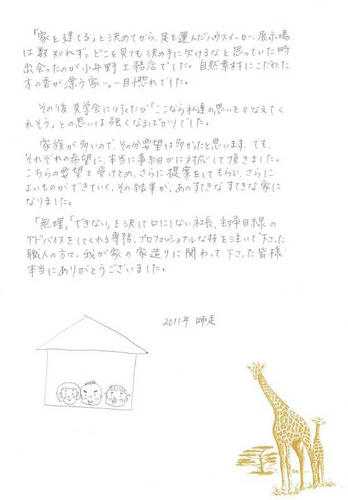 「家を建てる」と決めてから、足を運んだハウスメーカー、展示場
は数知れず。どこを見ても決め手に欠けるなと思っていた時
出会ったのが小安野工務店でした。自然素材にこだわた
木の香が漂う家〜。一目惚れでした。
その後見学会に行くたび「ここなら私達の思いをかなえてく
れそう」との思いは強くなるばかりでした。
家族が多いので、その分要望は多かったと思います。でも、
それぞれの希望に、本当に事細かに対応して頂きました。
こちらの要望を受けとめ、さらに提案をしてもらい、さらに
よいものができていく、その結果が、あのすてきなすてきな家に
なりました。
「無理」「できない」を決て口にしない社長、主婦目線の
アドバイスをしてくれる専務、プロフェッショナルな技を注いで下さった
職人の方々、我が家の家造りに関わって下さった皆様
本当にありがとうございました。
2011年 師走